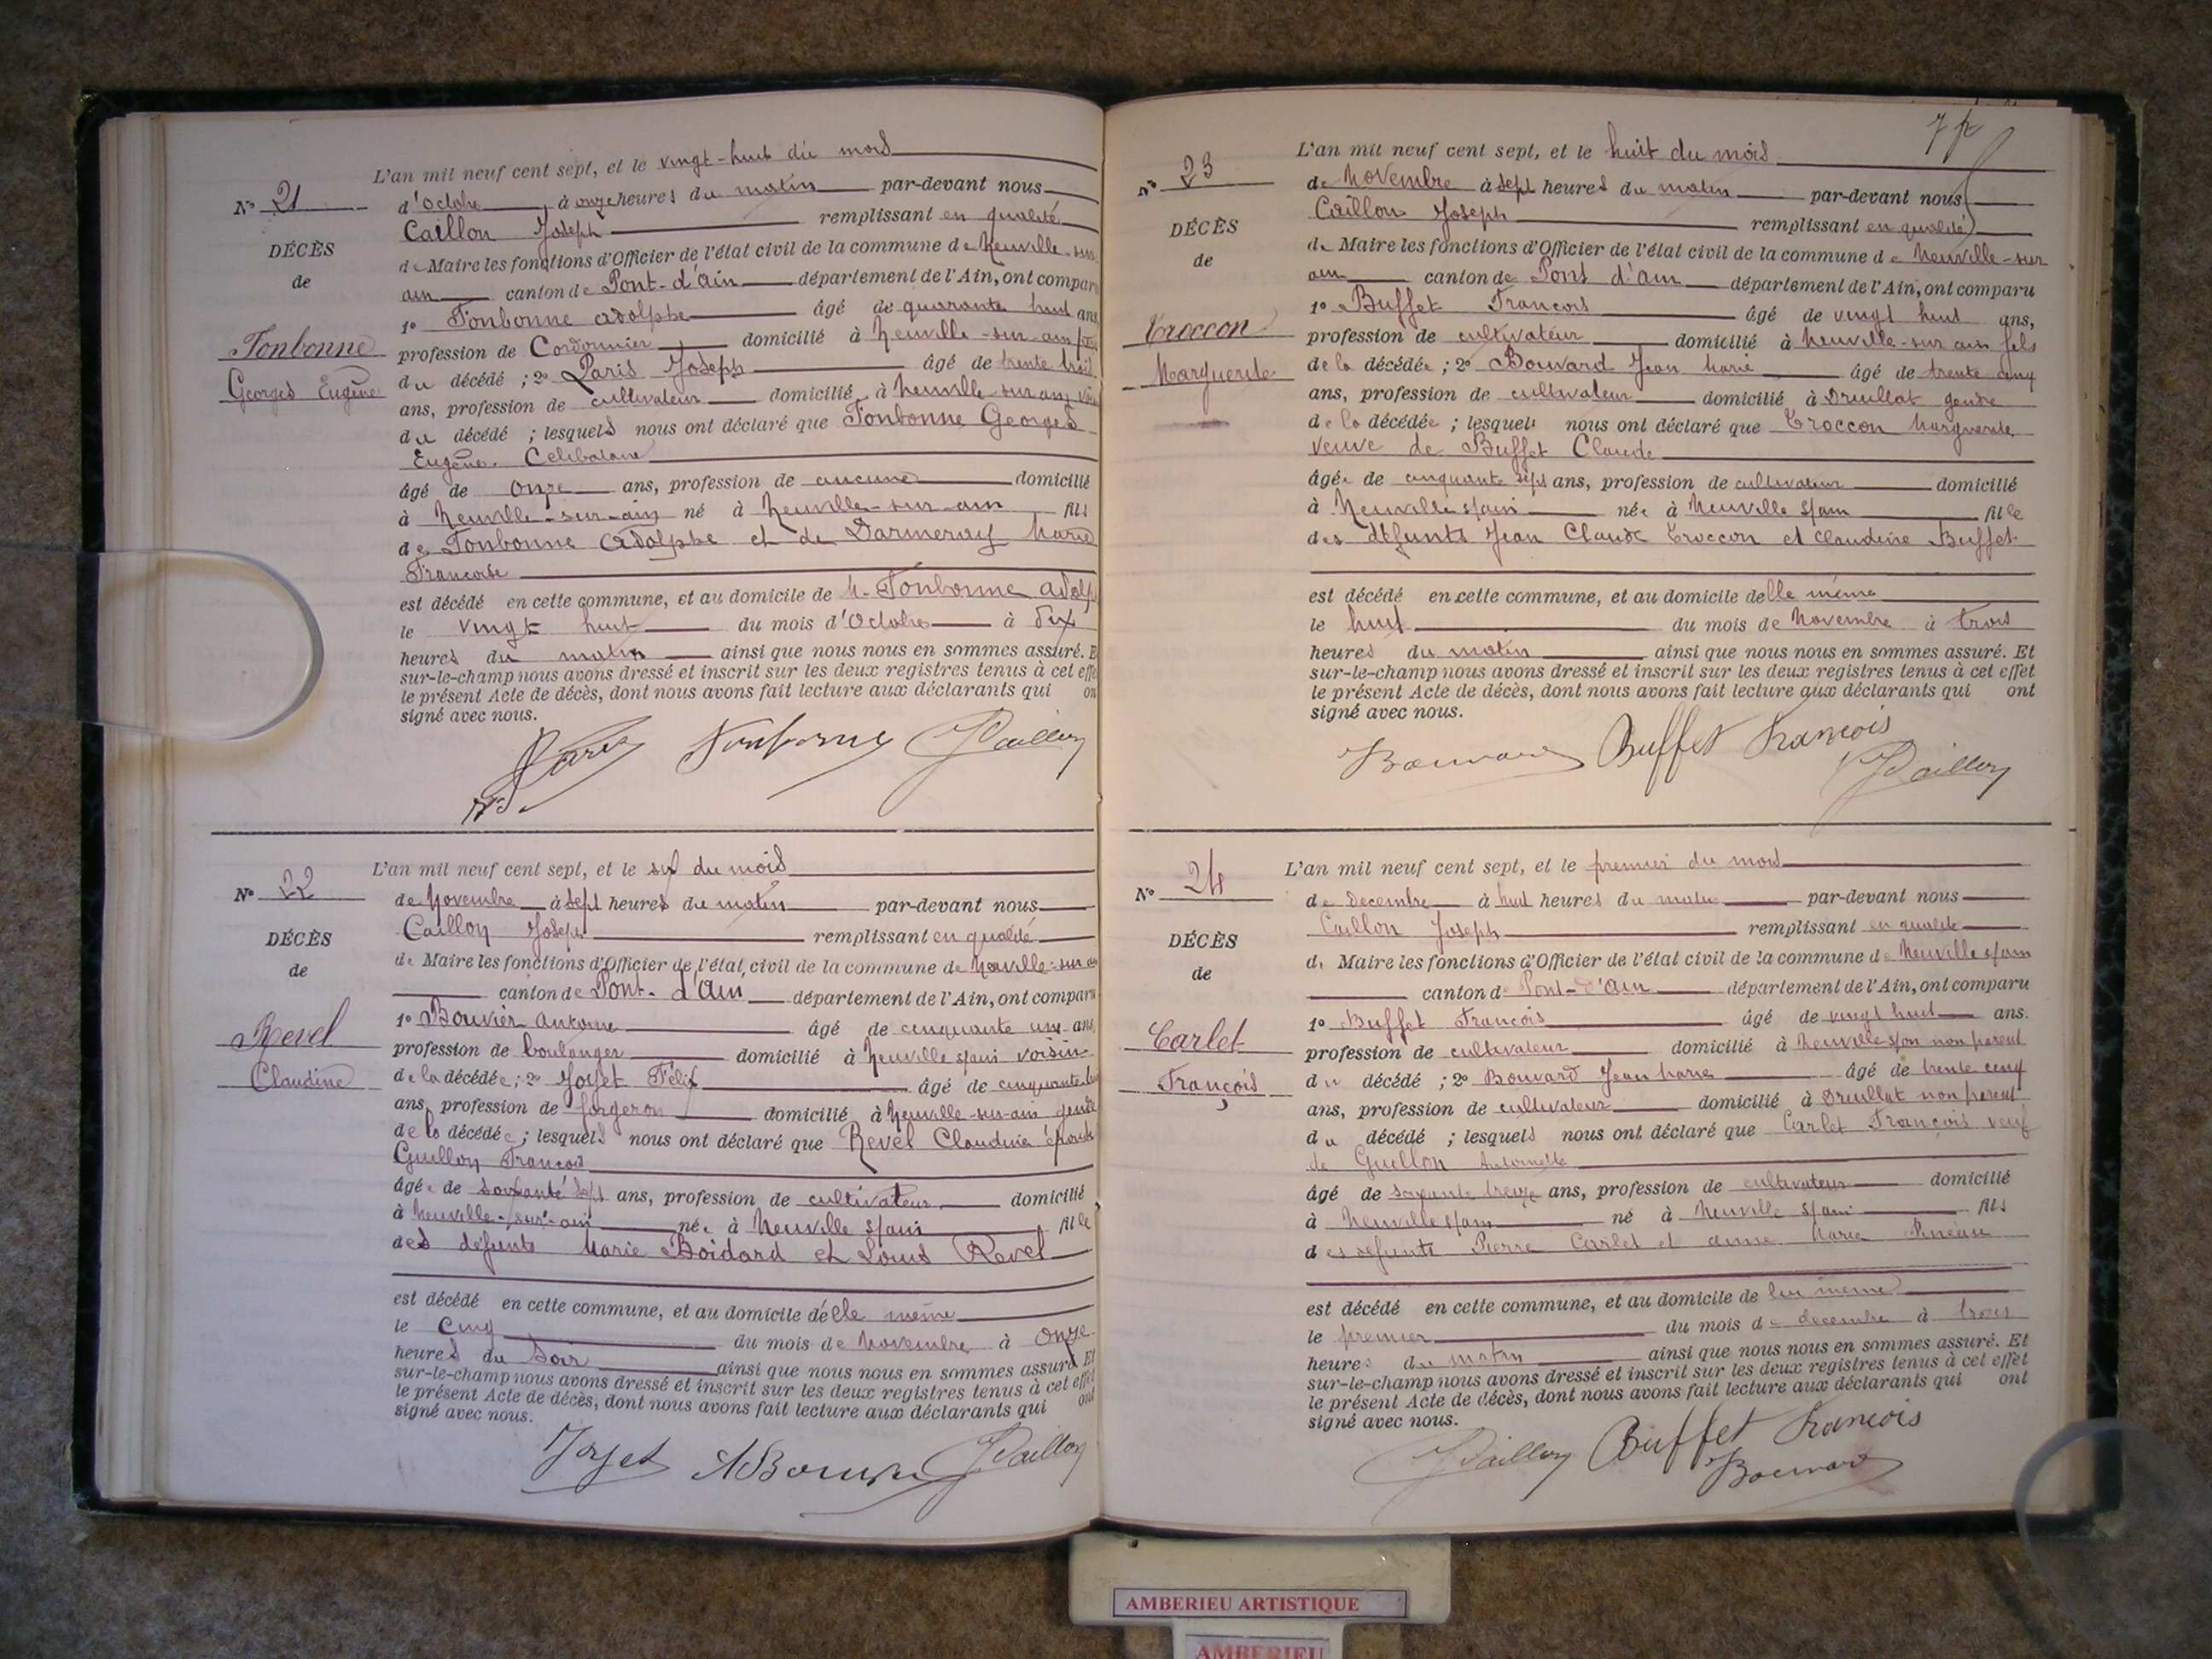 L'an mil neuf cent sept, et le vingt-huit du mois
N° 21
d'Octobre à onze heures du matin par-devant nous
Caillon Joseph remplissant en qualité
DÉCÈS
de Maire les fonctions d'Officier de l'état civil de la commune de Neuville-sur
de
ain canton de Pont-d'Ain département de l'Ain, ont comparu
1° Fonbonne Adolphe âgé de quarante huit ans,
Fonbonne
profession de Cordonnier domicilié à Neuville-sur-ain père
Georges Eugène
du décédé ; 2° Paris Joseph âgé de trente trois
ans, profession de cultivateur domicilié à Neuville-sur-ain
du décédé ; lesquels nous ont déclaré que Fonbonne Georges
Eugène. Célibataire
âgé de onze ans, profession de aucune domicilié
à Neuville-sur-ain né à Neuville-sur-ain fils
de Fonbonne Adolphe et de Darmeray Marie
Francoise
est décédé en cette commune, et au domicile de M. Fonbonne Adolp
le vingt huit du mois d'Octobre à dix
heures du matin ainsi que nous nous en sommes assuré. E
sur-le-champ nous avons dressé et inscrit sur les deux registres tenus à cet effe
le présent Acte de décès, dont nous avons fait lecture aux déclarants qui on
signé avec nous.
Paris Fonbonne JCaillon
L'an mil neuf cent sept, et le six du mois
N° 22
de Novembre à sept heures du matin par-devant nous
Caillon Joseph remplissant en qualité
DÉCÈS
de Maire les fonctions d'Officier de l'état civil de la commune de Neuville-sur
de
canton de Pont-d'Ain département de l'Ain, ont comparu
1° Bouvier Antoine âgé de cinquante un ans,
Revel
profession de boulanger domicilié à Neuville s/ain voisin
Claudine
de la décédée ; 2° Joyet Félix âgé de cinquante
ans, profession de forgeron domicilié à Neuville-sur-ain gendre
de la décédée ; lesquels nous ont déclaré que Revel Claudine épouse
Guillon François
âgée de soixante sept ans, profession de cultivateur domicilié
à Neuville-sur-ain née à Neuville s/ain fille
des défunts Marie Boidard et Louis Revel
est décédé en cette commune, et au domicile d'elle même
le cinq du mois de Novembre à onze
heures du soir ainsi que nous nous en sommes assuré. Et
sur-le-champ nous avons dressé et inscrit sur les deux registres tenus à cet effet
le présent Acte de décès, dont nous avons fait lecture aux déclarants qui ont
signé avec nous.
Joyet ABouvier JCaillon
L'an mil neuf cent sept, et le huit du mois
N° 23
de Novembre à sept heures du matin par-devant nous
Caillon Joseph remplissant en qualité
DÉCÈS
de Maire les fonctions d'Officier de l'état civil de la commune de Neuville-sur
de
ain canton de Pont d'ain département de l'Ain, ont comparu
1° Buffet Francois âgé de vingt huit ans,
Troccon
profession de cultivateur domicilié à Neuville-sur ain fils
Marguerite
de la décédée ; 2° Bouvard Jean Marie âgé de trente cinq
ans, profession de cultivateur domicilié à Druillat gendre
de la décédée ; lesquels nous ont déclaré que Troccon Marguerite
veuve de Buffet Claude
âgée de cinquante sept ans, profession de cultivateur domicilié
à Neuville s/ain née à Neuville s/ain fille
des défunts Jean Claude Troccon et Claudine Buffet
est décédé en cette commune, et au domicile d'elle même
le huit du mois de Novembre à trois
heures du matin ainsi que nous nous en sommes assuré. Et
sur-le-champ nous avons dressé et inscrit sur les deux registres tenus à cet effet
le présent Acte de décès, dont nous avons fait lecture aux déclarants qui ont
signé avec nous.
Bouvard Buffet francois
JCaillon
L'an mil neuf cent sept, et le premier du mois
N° 24
de Decembre à huit heures du matin par-devant nous
Caillon Joseph remplissant en qualité
DÉCÈS
de Maire les fonctions d'Officier de l'état civil de la commune de Neuville s/ain
de
canton de Pont-d'Ain département de l'Ain, ont comparu
1° Buffet François âgé de vingt huit ans.
Carlet
profession de cultivateur domicilié à Neuville s/ain non parent
François
du décédé ; 2° Bouvard Jean Marie âgé de trente cinq
ans, profession de cultivateur domicilié à Druillat non parent
du décédé ; lesquels nous ont déclaré que Carlet François veuf
de Guillon Antoinette
âgé de soixante treize ans, profession de cultivateur domicilié
à Neuville s/ain né à Neuville s/ain fils
des défunts Pierre Carlet et Anne Marie
est décédé en cette commune, et au domicile de lui même
le premier du mois de decembre à trois
heures du matin ainsi que nous nous en sommes assuré. Et
sur-le-champ nous avons dressé et inscrit sur les deux registres tenus à cet effet
le présent Acte de décès, dont nous avons fait lecture aux déclarants qui ont
signé avec nous.
JCaillon Buffet francois
Bouvard
AMBERIEU ARTISTIQUE
AMBERIEU